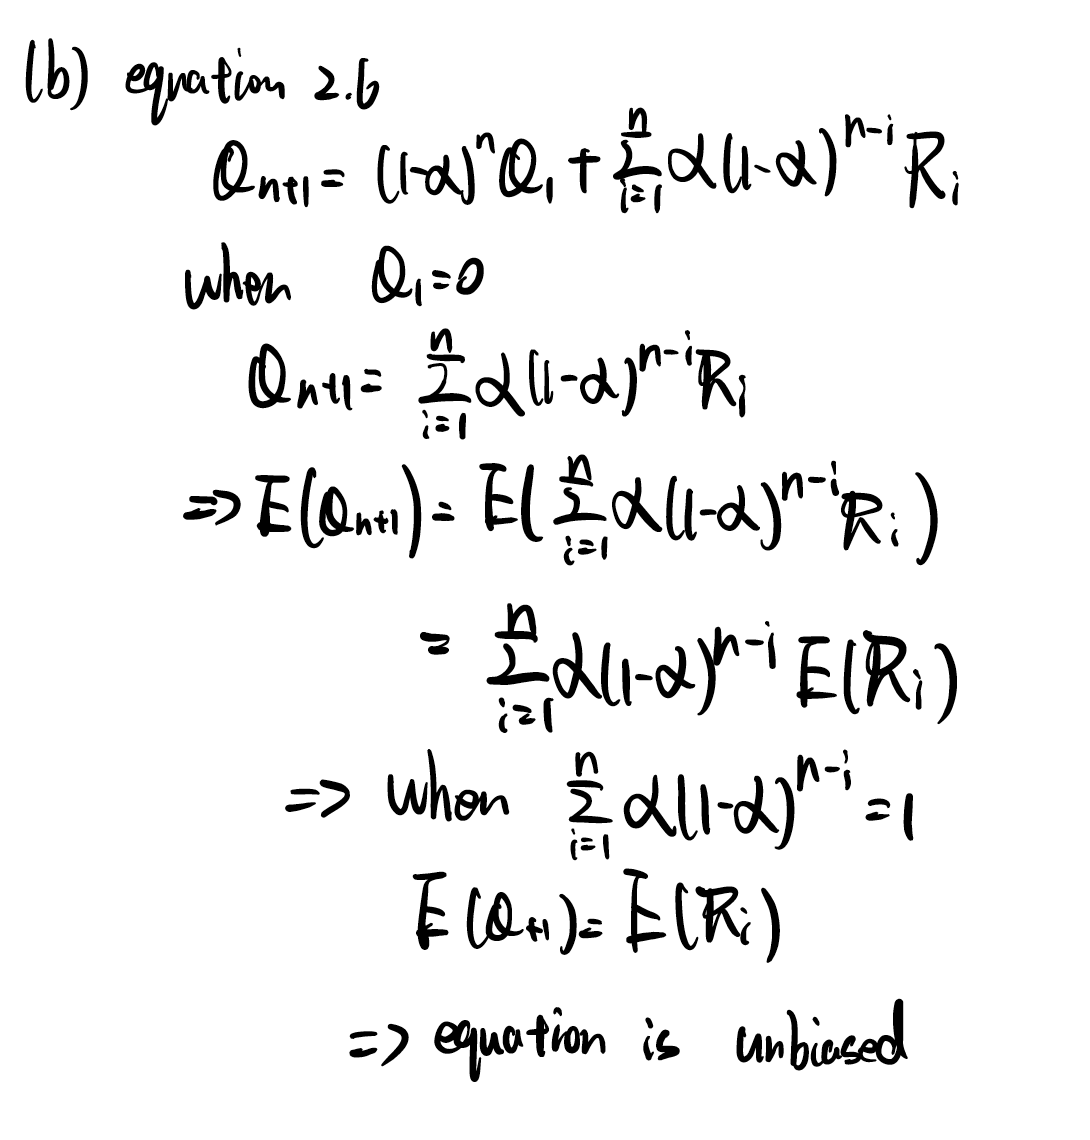 (b) equation 2.6
Qn+1 = (1-α)^n Q1 + Σ_{i=1}^{n} α(1-α)^{n-i} Ri
when Q1=0
Qn+1 = Σ_{i=1}^{n} α(1-α)^{n-i} Ri
=> E(Qn+1) = E(Σ_{i=1}^{n} α(1-α)^{n-i} Ri)
= Σ_{i=1}^{n} α(1-α)^{n-i} E(Ri)
=> when Σ_{i=1}^{n} α(1-α)^{n-i} = 1
E(Q+1) = E(Ri)
=> equation is unbiased